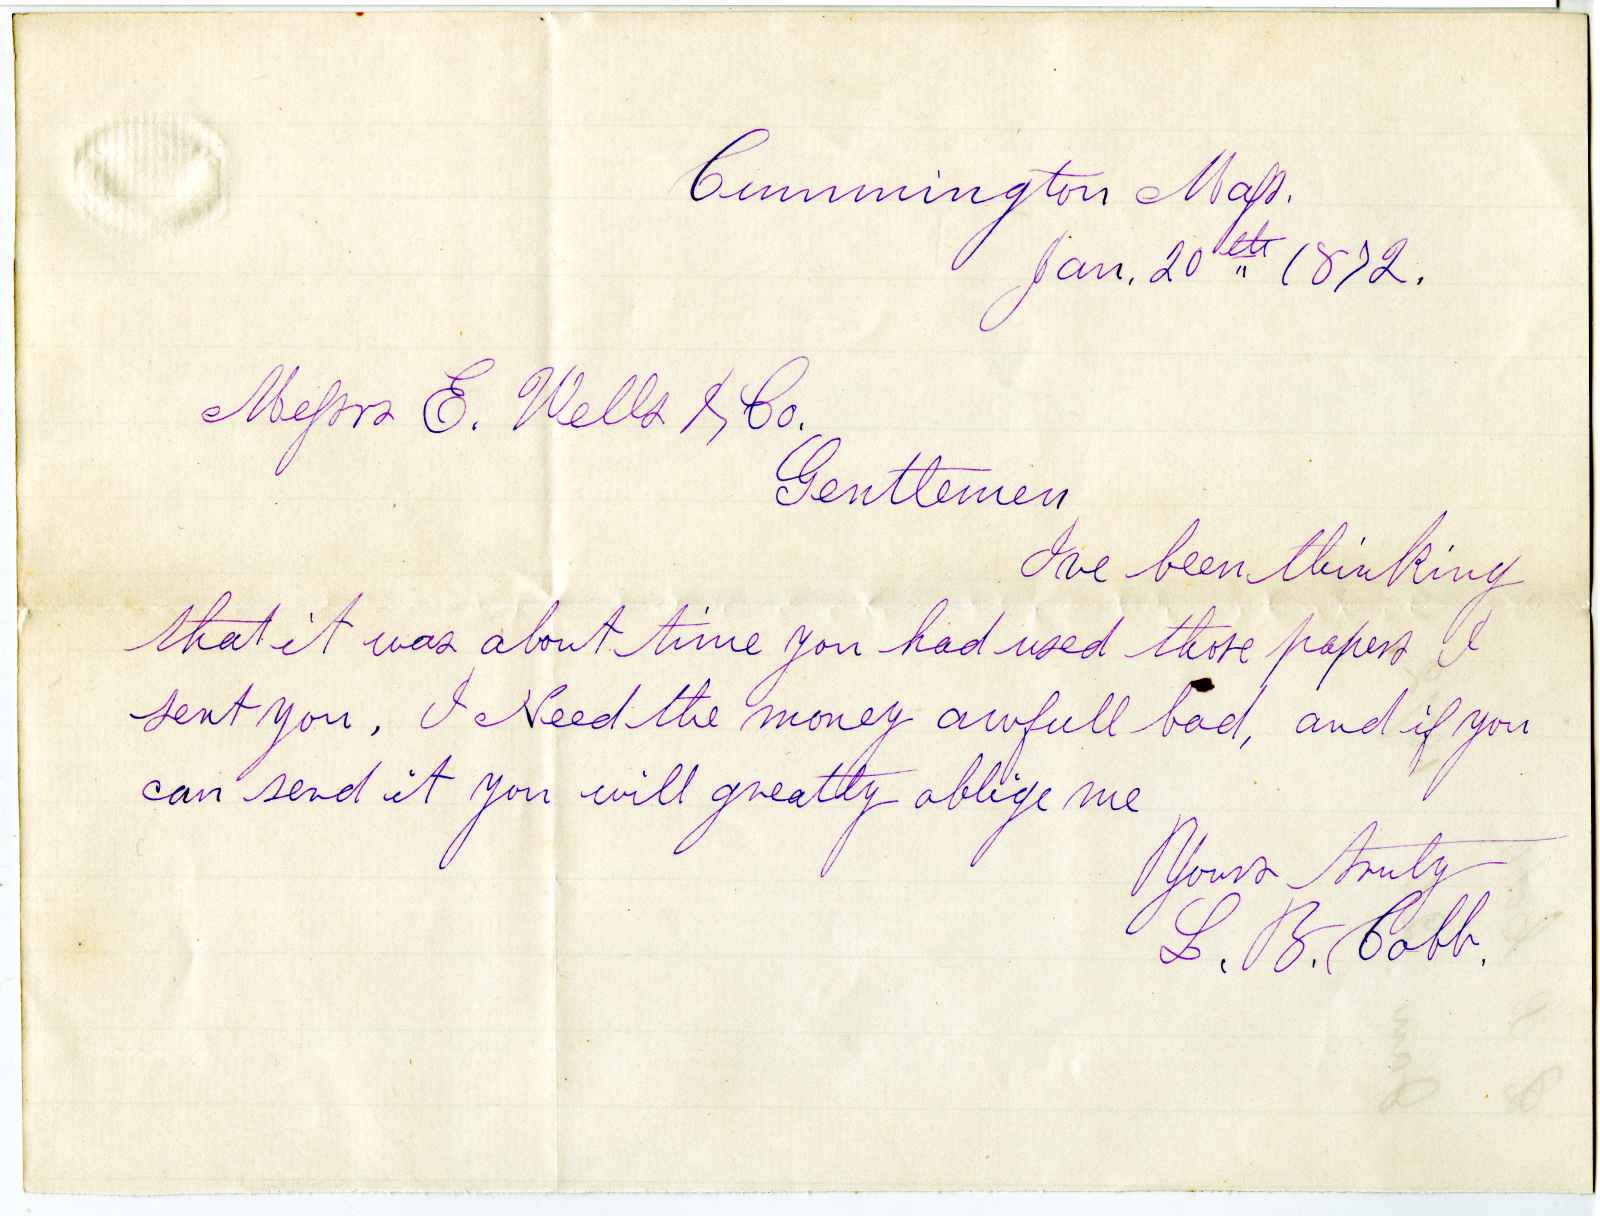 Cummington Mass.
Jan. 20th 1872.
Messrs E. Wells & Co.
Gentlemen
I've been thinking
that it was about time you had used those papers I
sent you. I Need the money awfull bad, and if you
can send it you will greatly oblige me
Yours truly
L. B. Cobb.